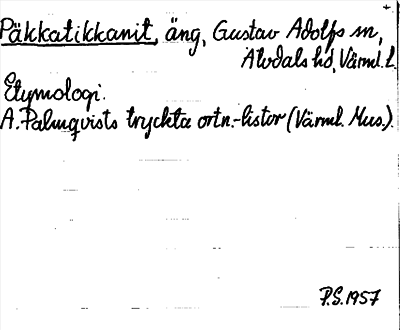 +
Päkkatikkanit, äng, Gustav Adolfs sn,
Älvdals hd, Värml. L.
Etymologi.
A. Palmqvists tryckta ortn.-listor (Värml. Mus.).
P.S. 1957